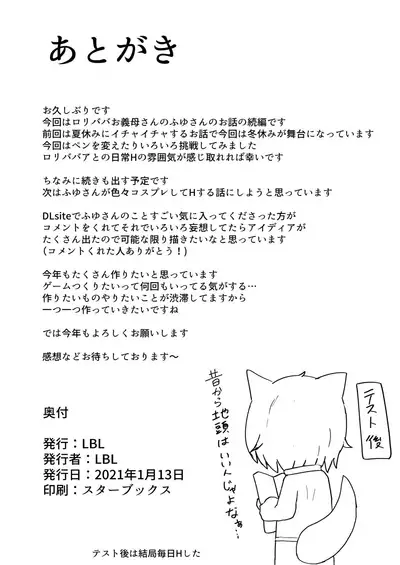 あとがき
お久しぶりです
今回はロリババお義母さんのふゆさんのお話の続編です
前回は夏休みにイチャイチャするお話で今回は冬休みが舞台になっています
今回はペンを変えたりいろいろ挑戦してみました
ロリババアとの日常Hの雰囲気が感じ取れれば幸いです
ちなみに続きも出す予定です
次はふゆさんが色々コスプレしてHする話にしようと思っています
DLsiteでふゆさんのことすごい気に入ってくださった方が
コメントをくれてそれでいろいろ妄想してたらアイディアが
たくさん出たので可能な限り描きたいなと思っています
(コメントくれた人ありがとう!)
今年もたくさん作りたいと思っています
ゲームつくりたいって何回もいってる気がする…
作りたいものやりたいことが渋滞してますから
一つ一つ作っていきたいですね
では今年もよろしくお願いします
感想などお待ちしております〜
テスト後
昔から地頭は
いいんじゃよなぁ…
奥付
発行:LBL
発行者:LBL
発行日:2021年1月13日
印刷:スターブックス
テスト後は結局毎日Hした